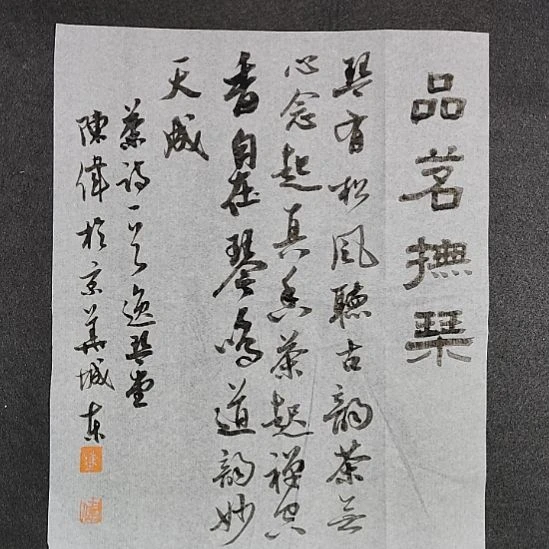 品茗撫琹
琴有松風聽古韵茶无
心念起真香茶起禅空
香自在琴鸣道韵妙
天成
茶詩一首逸琴堂
陳偉於京華城東